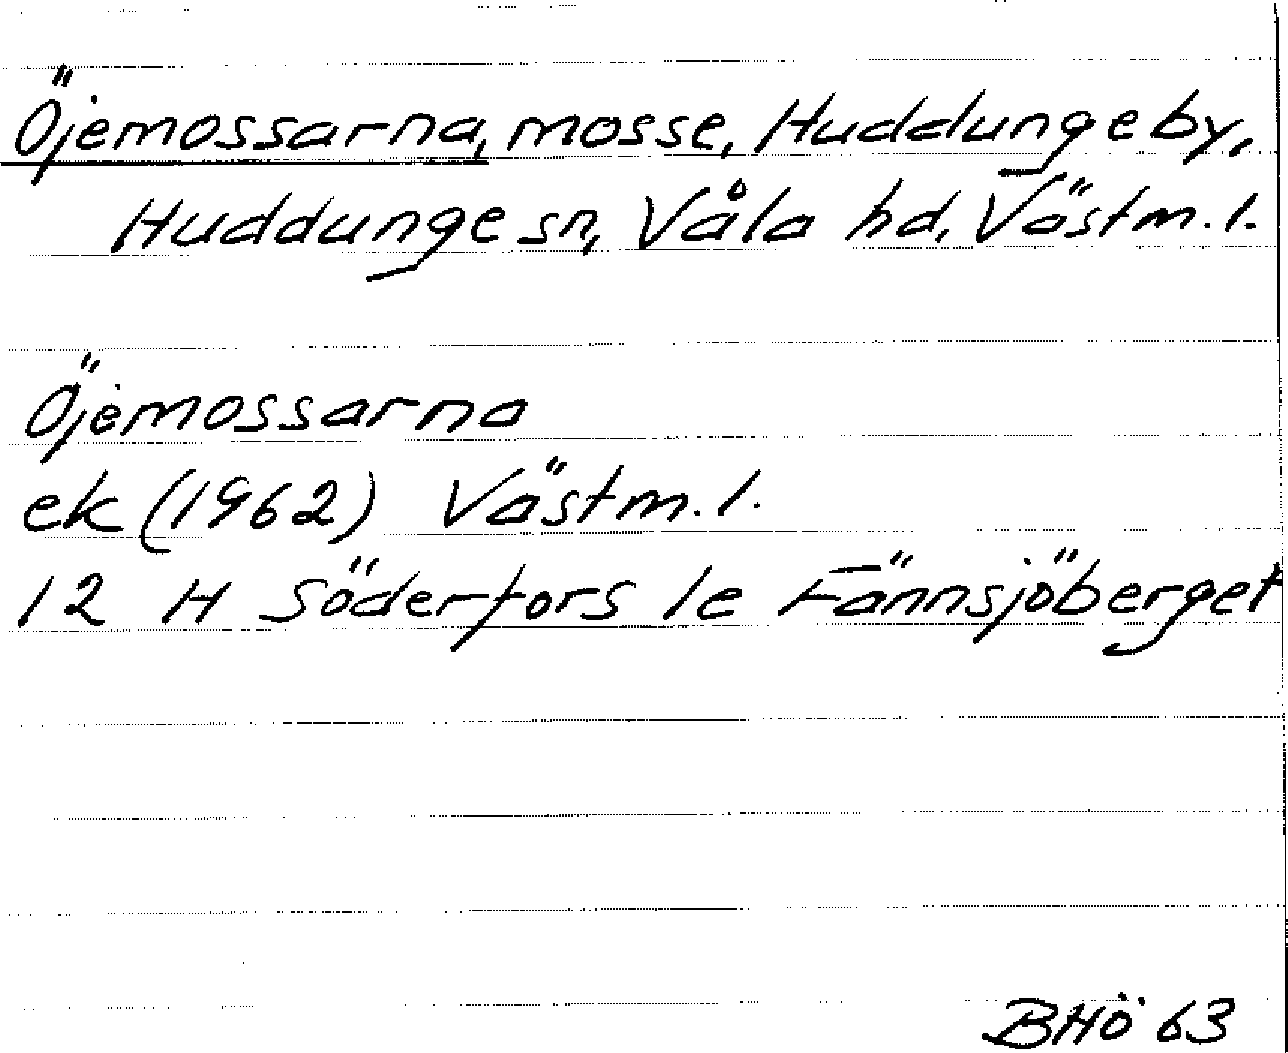 Öjemossarna, mosse, Huddungeby,
Huddunge sn, Våla hd, Västm. l.
Öjemossarna
ek (1962) Västm. l.
12 H Söderfors 1e Fännsjöberget
BHÖ 63